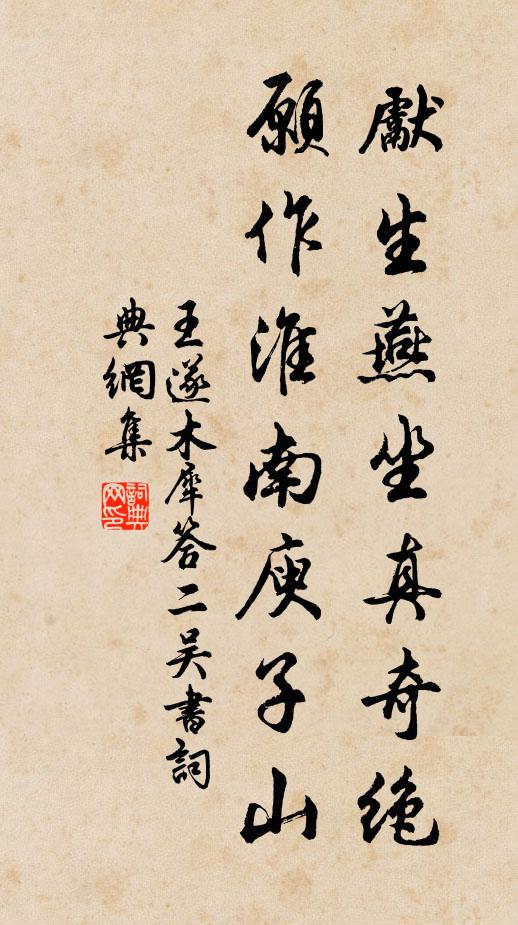 獻生燕坐真奇絶
願作淮南庾子山
王遂木犀答二吴書詞
典網集
詞典
网印